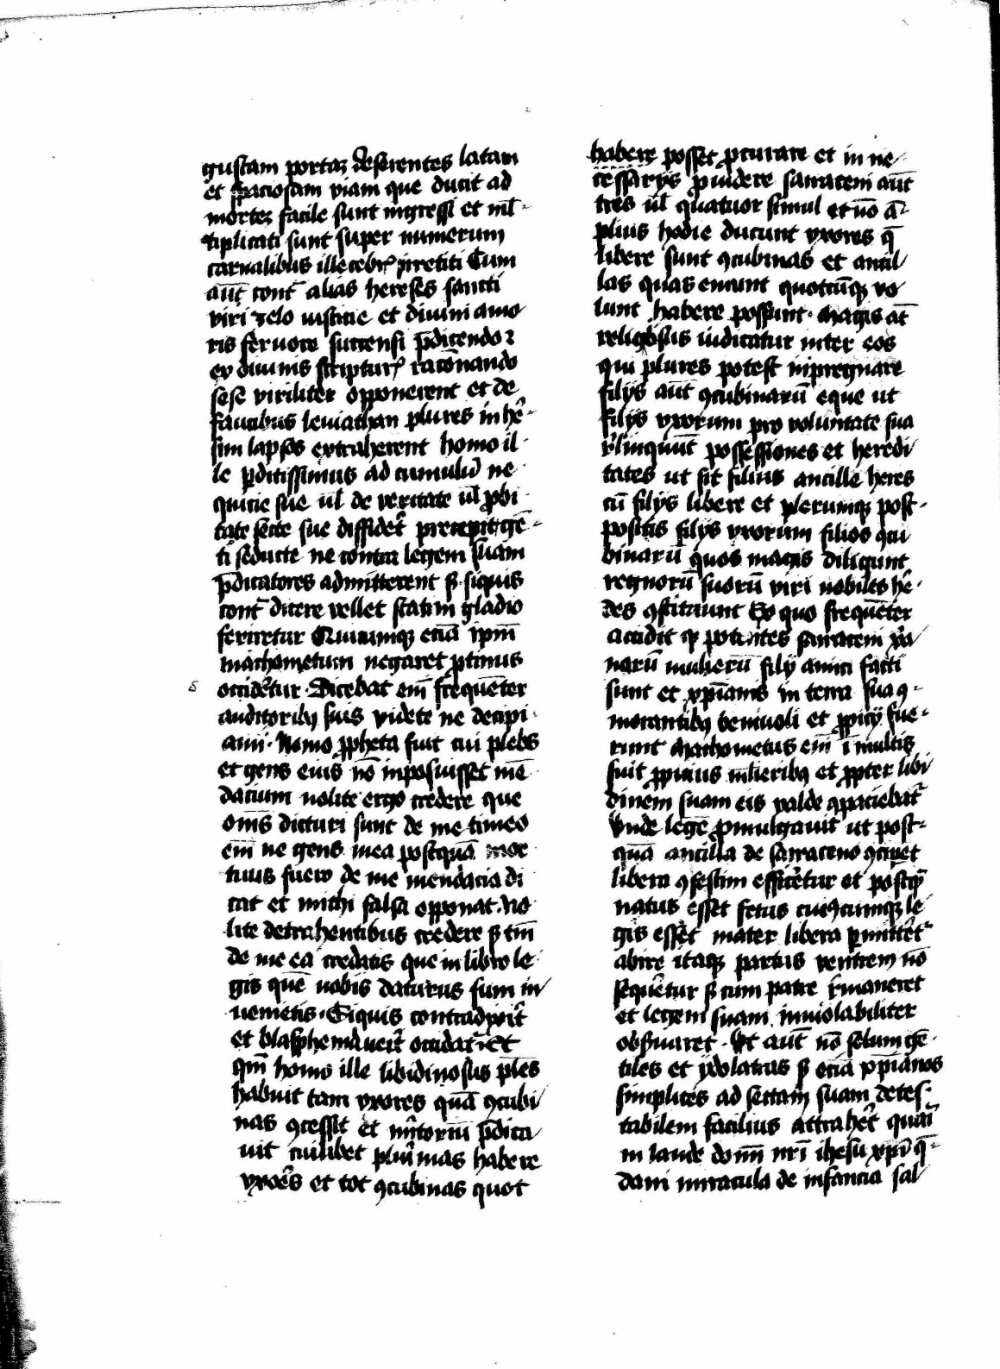 gustam portaz deserentes latam
et spaciosam viam que ducit ad
mortez facile sunt ingressi et ml̄-
tiplicati sunt super numerum
carnalibus illecebr̄ irretiti Cum
aūt cont̄ alias hereses sancti
viri zelo iusticie et diuini amo
ris feruore succensi p̄dicendo ⁊
ex diuinis scriptur̄ racōnando
sese viriliter opponerent et de
faucibus leuiathan plures in he᷒-
sim lapsos extraherent homo il-
le ꝑditissimus ad cumulū ne
quicie sue ul̄ de veritate ul̄ ꝓbi
tate secte sue diffideret̄ precepit gē-
ti seducte ne contra legem suam
p̄dicatores admitterent sꝫ siquis
cont̄ dicere vellet statim gladio
feriretur Quicumqꝫ eciā ip̄m
machometum negaret ꝓtinus
occidet̄ur. Dicebat em̄ frequēter
auditoribꝫ suis videte ne decipi-
ami. Nemo ꝓpheta fuit cui plebs
et gens eius nō inposuisset mē
dacium nolite ergo credere que
om̄s dicturi sunt de me timeo
em̄ ne gens mea postquā mor
tuus fuero de me mendacia di
cat et michi falsa opponat. No
lite detrahentibus credere sꝫ tm̄
de me ea credatis que in libro le-
gis quē uobis daturus sum in
uenietis. Siquis contradixit̄
et blasphemauerit̄ occidat̄. Et
qm̄ homo ille libidinosus ples̄
habuit tam vxores quā ꝯcubi
nas ꝯcessit et p̄dica
uit cuilibet plurimas habere
vxores et tot ꝯcubinas quot
habere posset ꝓcurare et in ne-
cessarijs ꝓuidere sarraceni aūt
tres ul̄ quatuor simul et nō ā-
plius hodie ducunt vxores q̄
libere sunt ꝯcubinas et ancil
las quas emunt quotcūqꝫ vo
lunt habere possunt. Magis at̄
religiosus iudicatur inter eos
qui plures potest inpregnare
filijs aūt ꝯcubinarū eque ut
filijs vxorum pro voluntate sua
r̄linquūt possessiones et heredi
tates ut sit filius ancille heres
cū filijs libere et plerumqꝫ post-
positis filijs vxorum filios ꝯcu
binarū quos magis diligunt
regnorū suorū viri nobiles he᷒-
des ꝯstituunt Ex quo frequēter
accidit ꝙ potentes sarraceni xp̄ia
narū mulierū filij amici facti
sunt et xp̄ianis in terra sua ꝯ-
morantibꝫ beniuoli et ꝓpicij fue-
runt Machometus em̄ ī multis
fuit ꝓpicius ml̄ieribꝫ et ꝓpter libi
dinem suam eis valde ꝯpaciebat̄
Vnde legē ꝓmulgauit ut post-
quā ancilla de sarraceno ꝯciꝑet
libera ꝯfestim efficeret̄ur et postꝙ̄
natus esset fetus cuꝯcumqꝫ le
gis esset mater libera ꝑmittet̄
abire itaqꝫ partus ventrem nō
sequet̄ur sꝫ cum patre r̄maneret
et legem suam inuiolabiliter
obseruaret. Vt aūt nō solum gē-
tiles et ydolatras sꝫ eciā xp̄ianos
simplices ad sectam suam detes-
tabilem facilius attrahet̄ quām
in laude domī nr̄i ihesu xp̄i q̄-
dam miracula de infancia sal